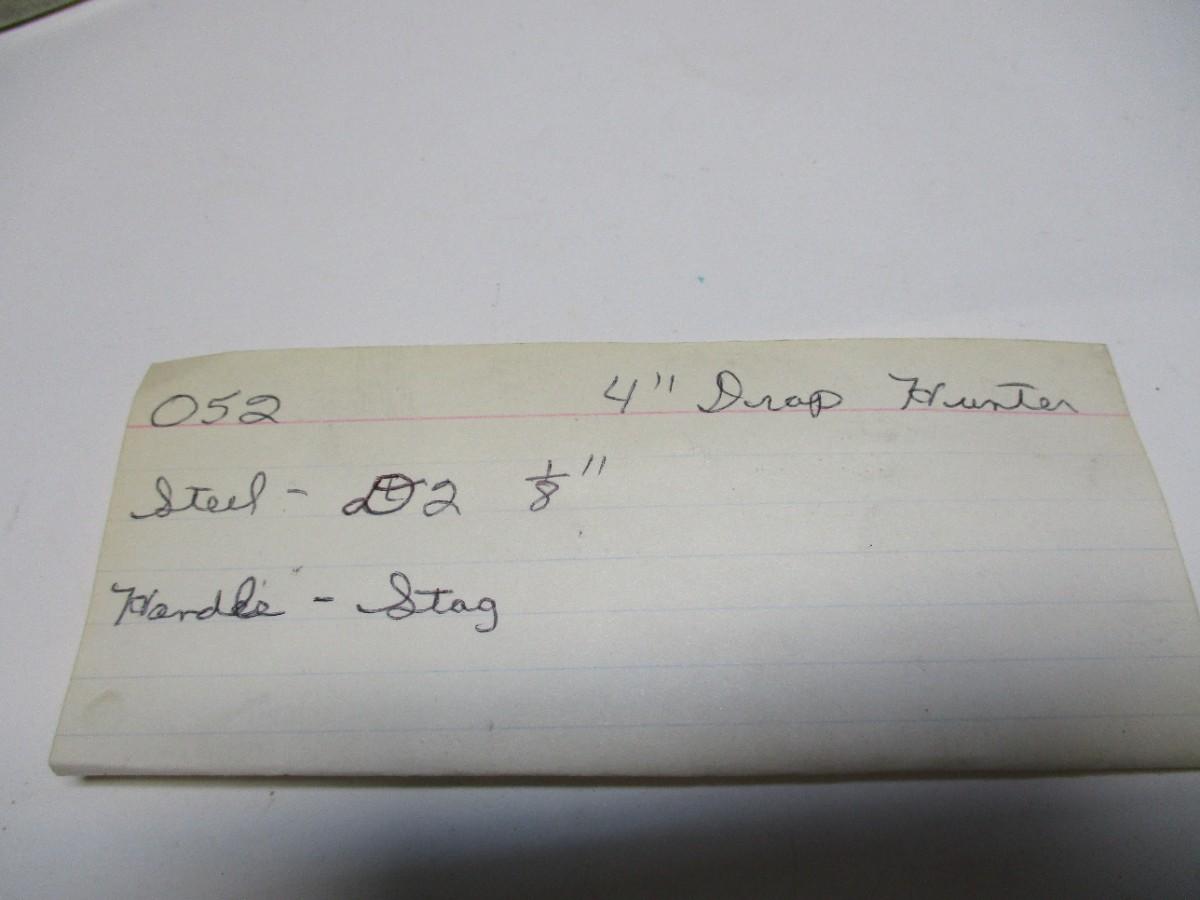 052 4" Drop Hunter
Steel - D2 1/8"
Handle - Stag